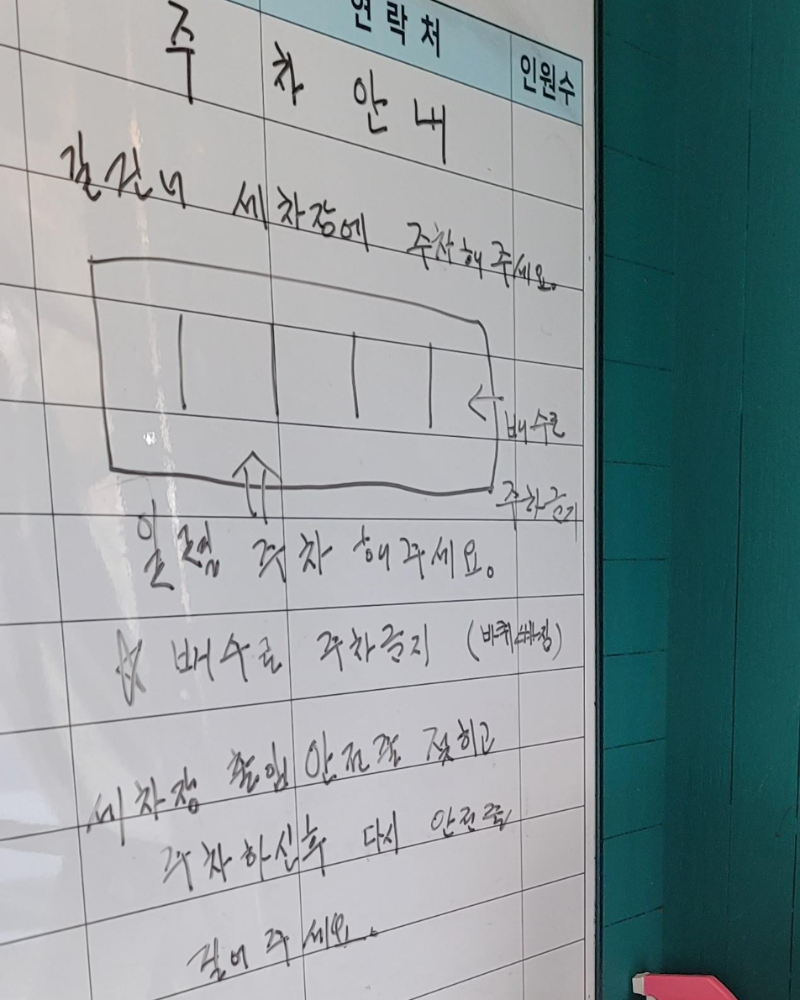 연락처 인원수
주차안내
길건너 세차장에 주차해주세요.
배수로
주차금지
일렬 주차 해주세요.
☆ 배수로 주차금지 (바퀴빠짐)
세차장 출입 안전줄 젖히고
주차하신후 다시 안전줄
걸어주세요.